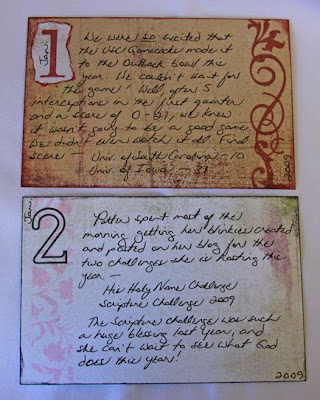 Jan.
1
We were so excited that
the USC Gamecocks made it
to the Outback bowl this
year. We couldn't wait for
the game! Well, after 5
interceptions in the first quarter
and a score of 0-21, we knew
it wasn't going to be a good game.
We didn't even watch it all. Final
score - Univ. of South Carolina - 10
Univ. of Iowa - 31
2009
Jan.
2
spent most of the
morning getting her blinkies created
and posted on her blog for the
two challenges she is hosting this
year -
His Holy Name Challenge
Scripture Challenge 2009
The Scripture challenge was such
a huge blessing last year, and
she can't wait to see what God
does this year!
2009